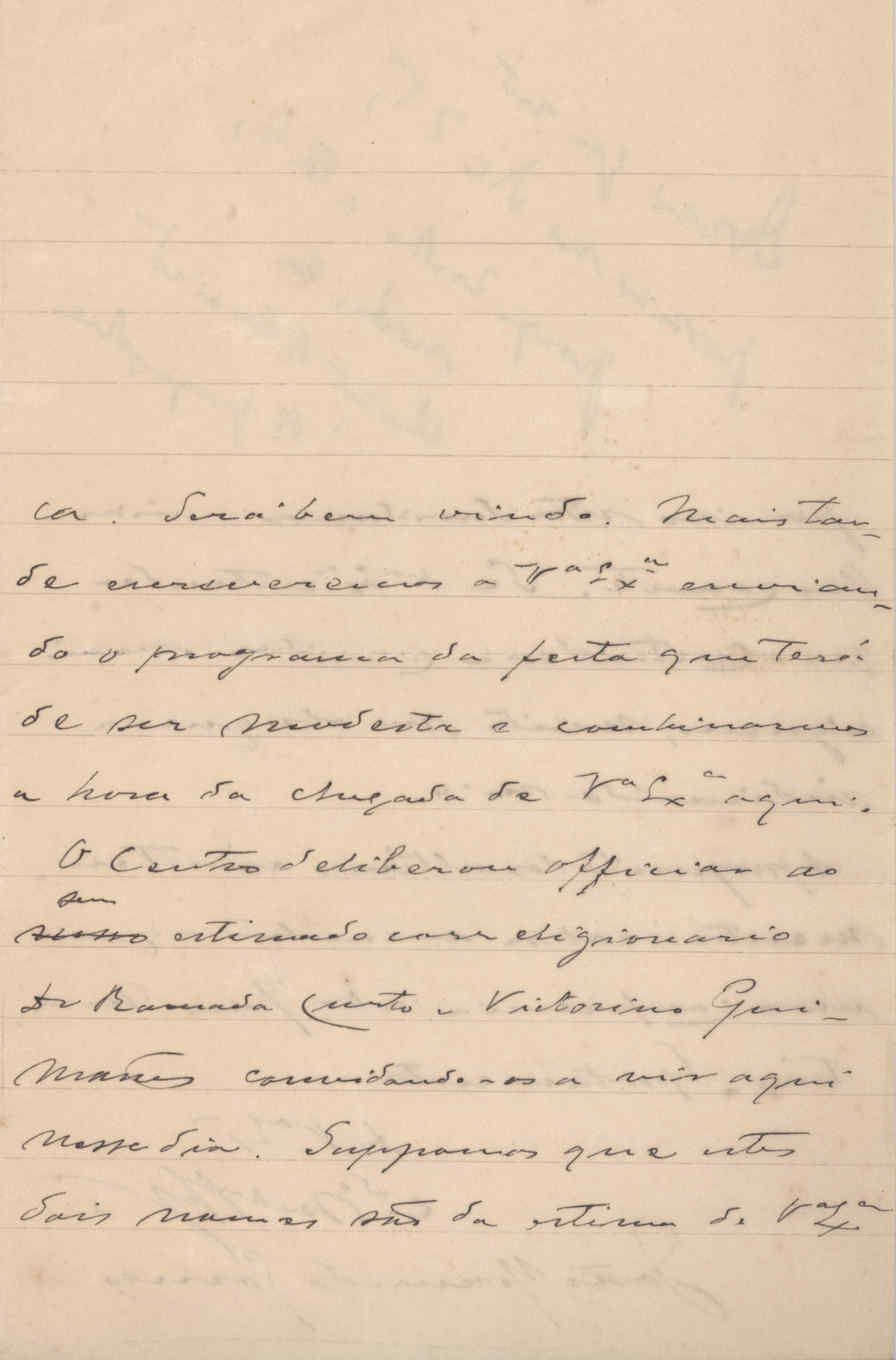 ca. Será bem vindo. Mais tar-
de escreveremos a Vª Exª envian-
do o programa da festa que terá
de ser modesta e combinarmos
a hora da chegada de Vª Exª aqui.
O Centro deliberou officiar ao
seu
estimado correligionario
Dr Ramada Curto e Victorino Gui-
marães convidando-os a vir aqui
nesse dia. Suppomos que estes
dois nomes são da estima de Vª Exª